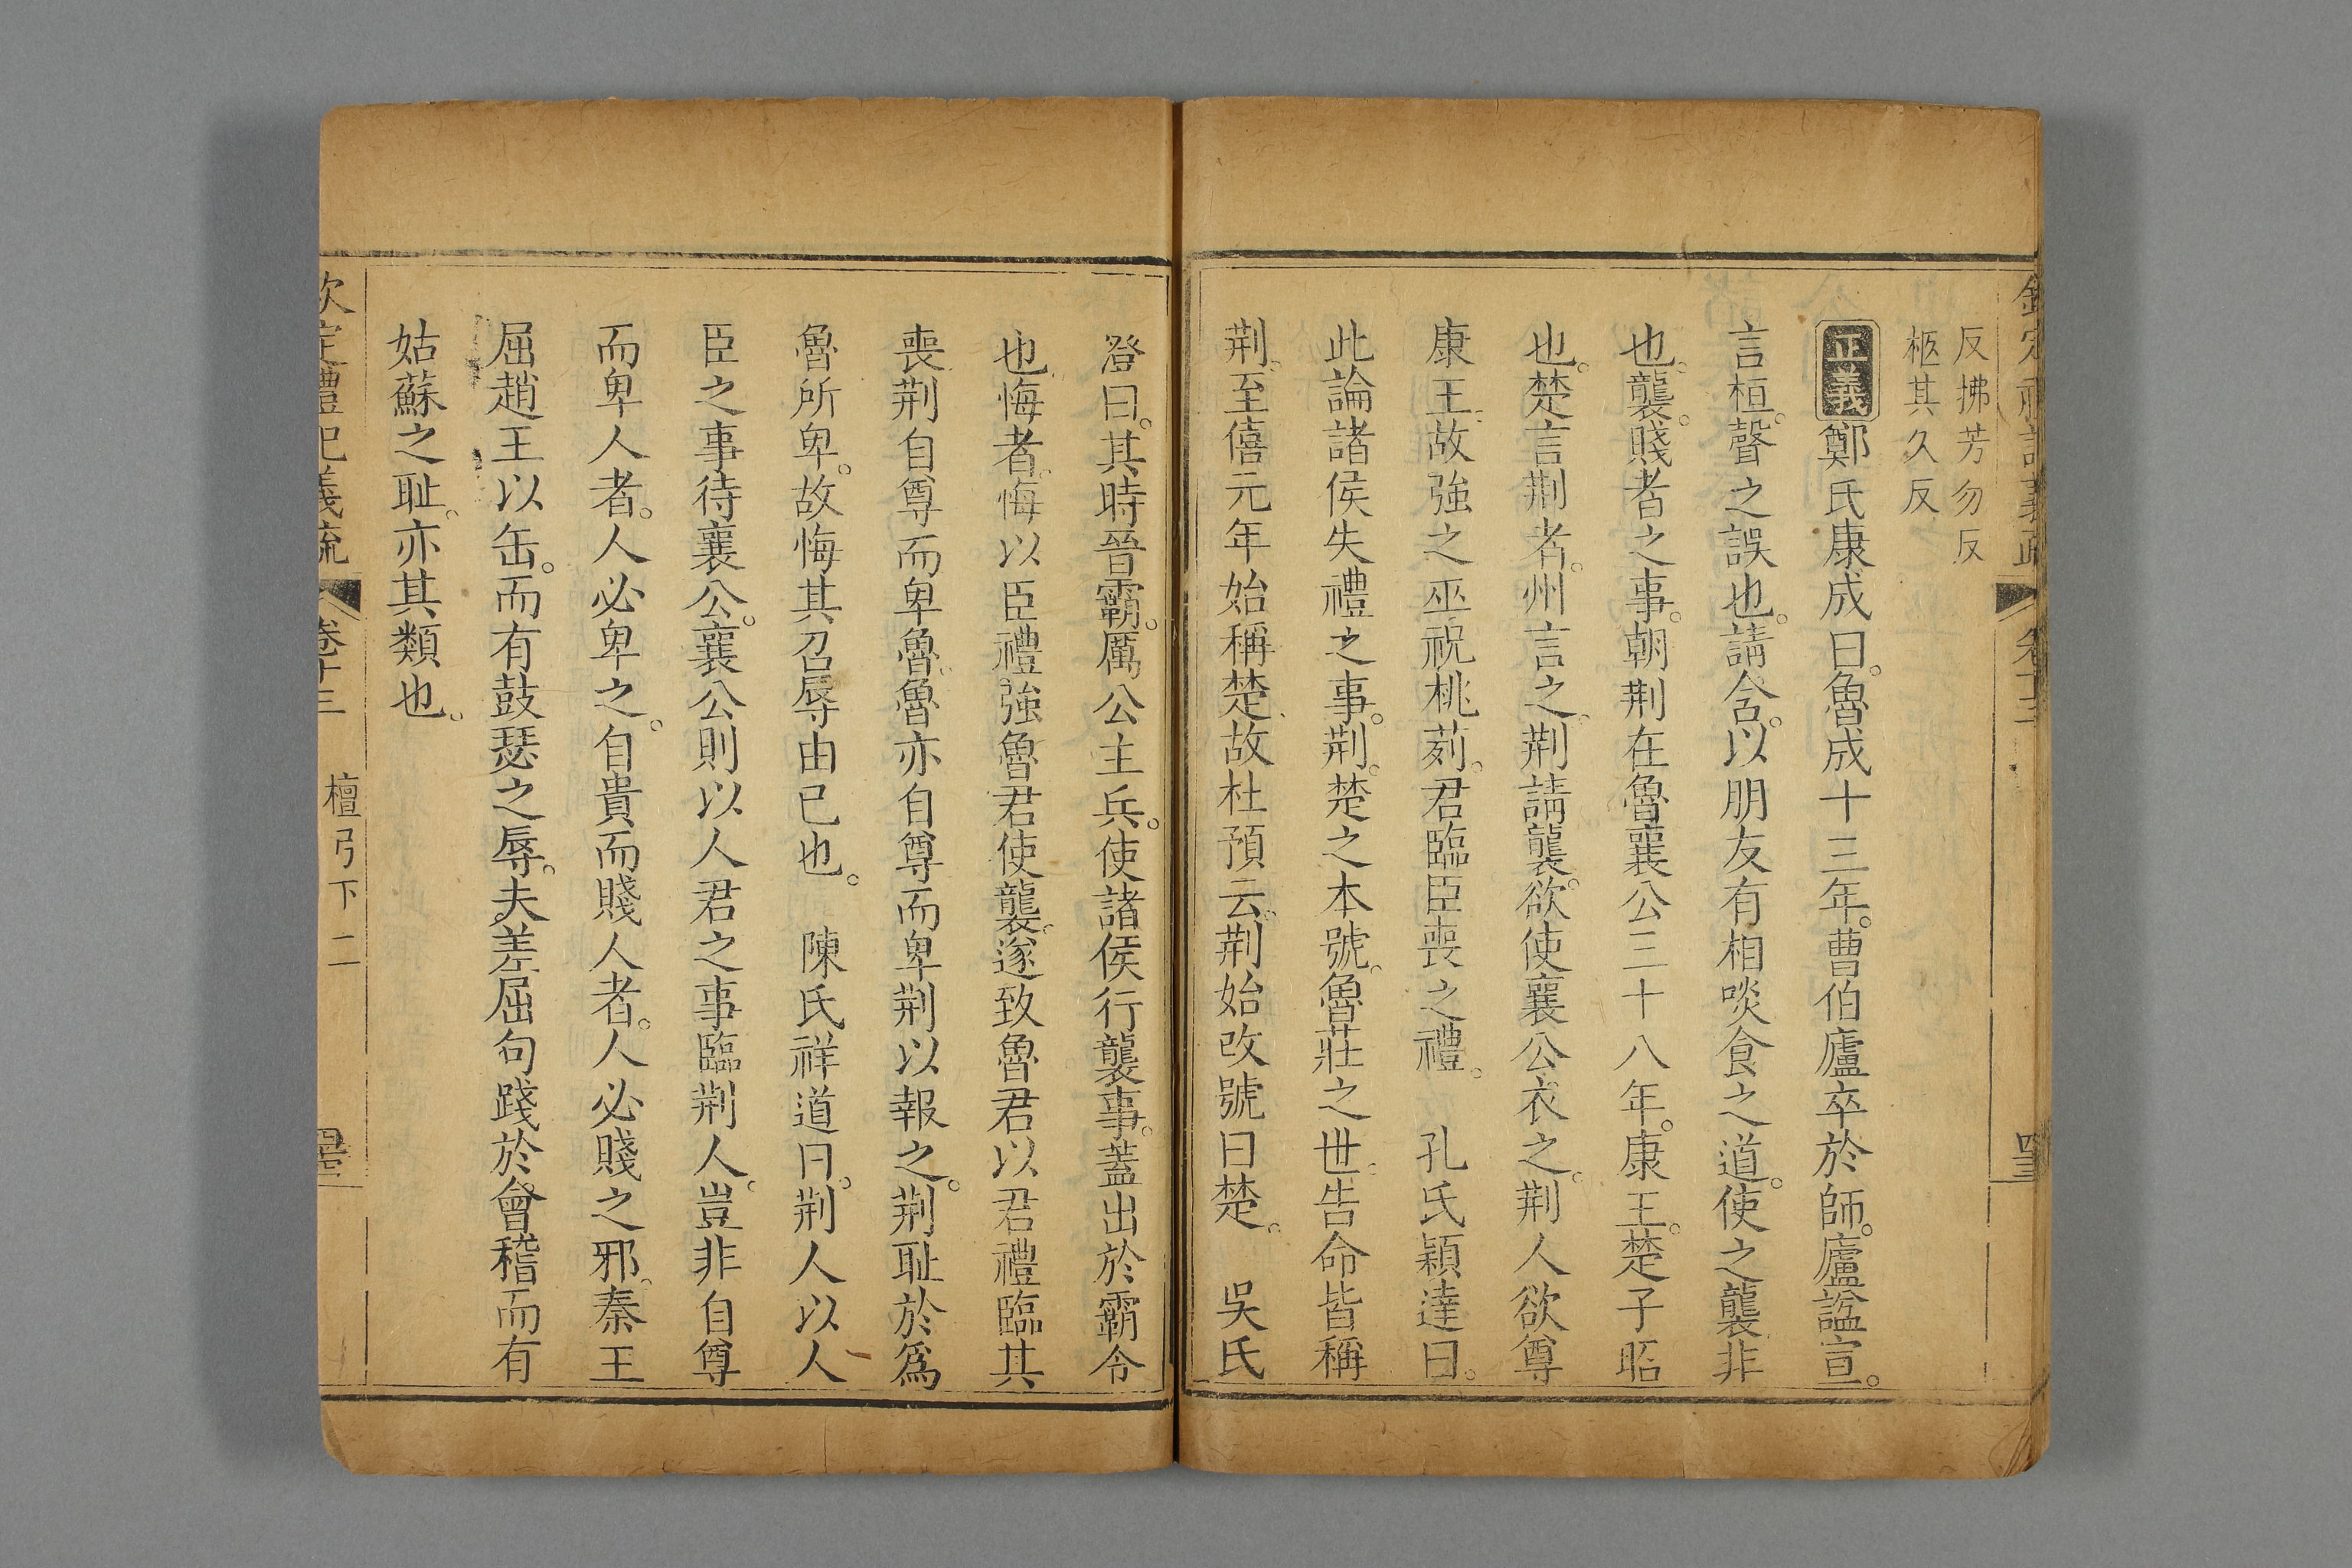 反拂芳勿反
柩其久反
正義鄭氏康成曰。魯成十三年。曹伯廬卒於師。廬謚宣。
言桓。聲之誤也。請含。以朋友有相啖食之道。使之襲非
也。襲。賤者之事。朝荆在魯襄公二十八年。康王。楚子昭
也。楚言荆者。州言之。荆請襲。欲使襄公衣之。荆人欲尊
康王。故強之巫祝桃茢。君臨臣喪之禮。　孔氏穎達曰。
此論諸侯失禮之事。荆。楚之本號。魯莊之世。告命皆稱
荆。至僖元年始稱楚。故杜預云。荆始改號曰楚。　吳氏
澄曰。其時晉霸。厲公主兵。使諸侯行襲事。蓋出於霸令
也。悔者。悔以臣禮強魯君使襲。遂致魯君以君禮臨其
喪荆自尊而卑魯。魯亦自尊而卑荆以報之。荆耻於爲
魯所卑。故悔其召辱由已也。　陳氏祥道曰。荆人以人
臣之事待襄公。襄公則以人君之事臨荆人。豈非自尊
而卑人者。人必卑之。自貴而賤人者。人必賤之邪。秦王
屈趙王以缶。而有鼓瑟之辱。夫差屈句踐於會稽而有
姑蘇之耻。亦其類也。
欽定禮記義疏　卷十三　檀弓下二